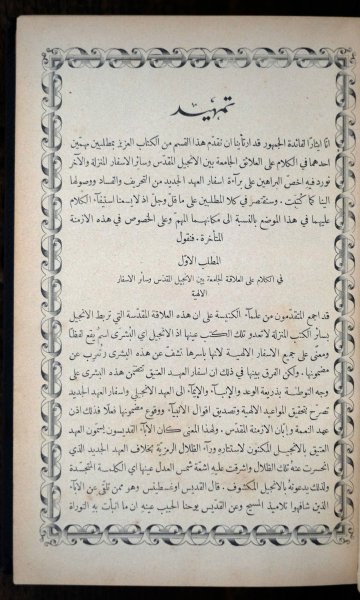 تمهيد
انَّا ايثارًا لفائدة الجمهور قد ارتأينا ان نقدّم هذا القسم من الكتاب العزيز بمطلبين مهمّين
احدهما في الكلام على العلائق الجامعة بين الانجيل المقدّس وسائر الاسفار المنزلة والآخر
نورد فيه اخصّ البراهين على برآءة اسفار العهد الجديد من التحريف والفساد ووصولها
الينا كما كُتبَت. وسنقتصر في كلا المطلبين على ما قلّ وجلّ اذ لا يسعنا استيفآء الكلام
عليهما في هذا الموضع بالنسبة الى مكانهما المهمّ وعلى الخصوص في هذه الازمنة
المتأخرة. فنقول
المطلب الاول
في الكلام على العلاقة الجامعة بين الانجيل المقدس وسائر الاسفار
الالهية
قد اجمع المتقدّمون من علمآء الكنيسة على ان هذه العلاقة المقدّسة التي تربط الانجيل
بسائر الكتب المنزلة لا تعدو تلك الكتب عينها اذ الانجيل اي البُشرى اسمٌ يقع لفظًا
ومعنًى على جميع الاسفار الالهية لانها باسرها تشفّ عن هذه البشرى وتُعرِب عن
مضمونها. ولكن الفرق بينها في ذلك ان اسفار العهد العتيق تتضمّن هذه البشرى على
وجه التوطئة بذريعة الوعد والإنبآء والإيمآء الى العهد الانجيلي واسفار العهد الجديد
تصرّح بتحقيق المواعيد الالهية وتصديق اقوال الانبيآء ووقوع مضمونها فعلًا فذلك اذن
عهد النعمة وإبّان الازمنة المقدّس. ولهذا المعنى كان الآبآء القديسون يسمّون العهد
العتيق بالانجيل المكنون لاستتاره ورآء الظلال الرمزيّة بخلاف العهد الجديد الذي
انحسرت عنه تلك الظلال واشرقت عليه اشعّة شمس العدل عينها اي الكلمة المتجسّدة
ولذلك يدعونهُ بالانجيل المكشوف. قال القديس اوغسطينس وهو ممن تلقّى عن الآبآء
الذين شافهوا تلاميذ المسيح وعن القديس يوحنا الحبيب عينهِ ان ما انبأت بهِ التوراة